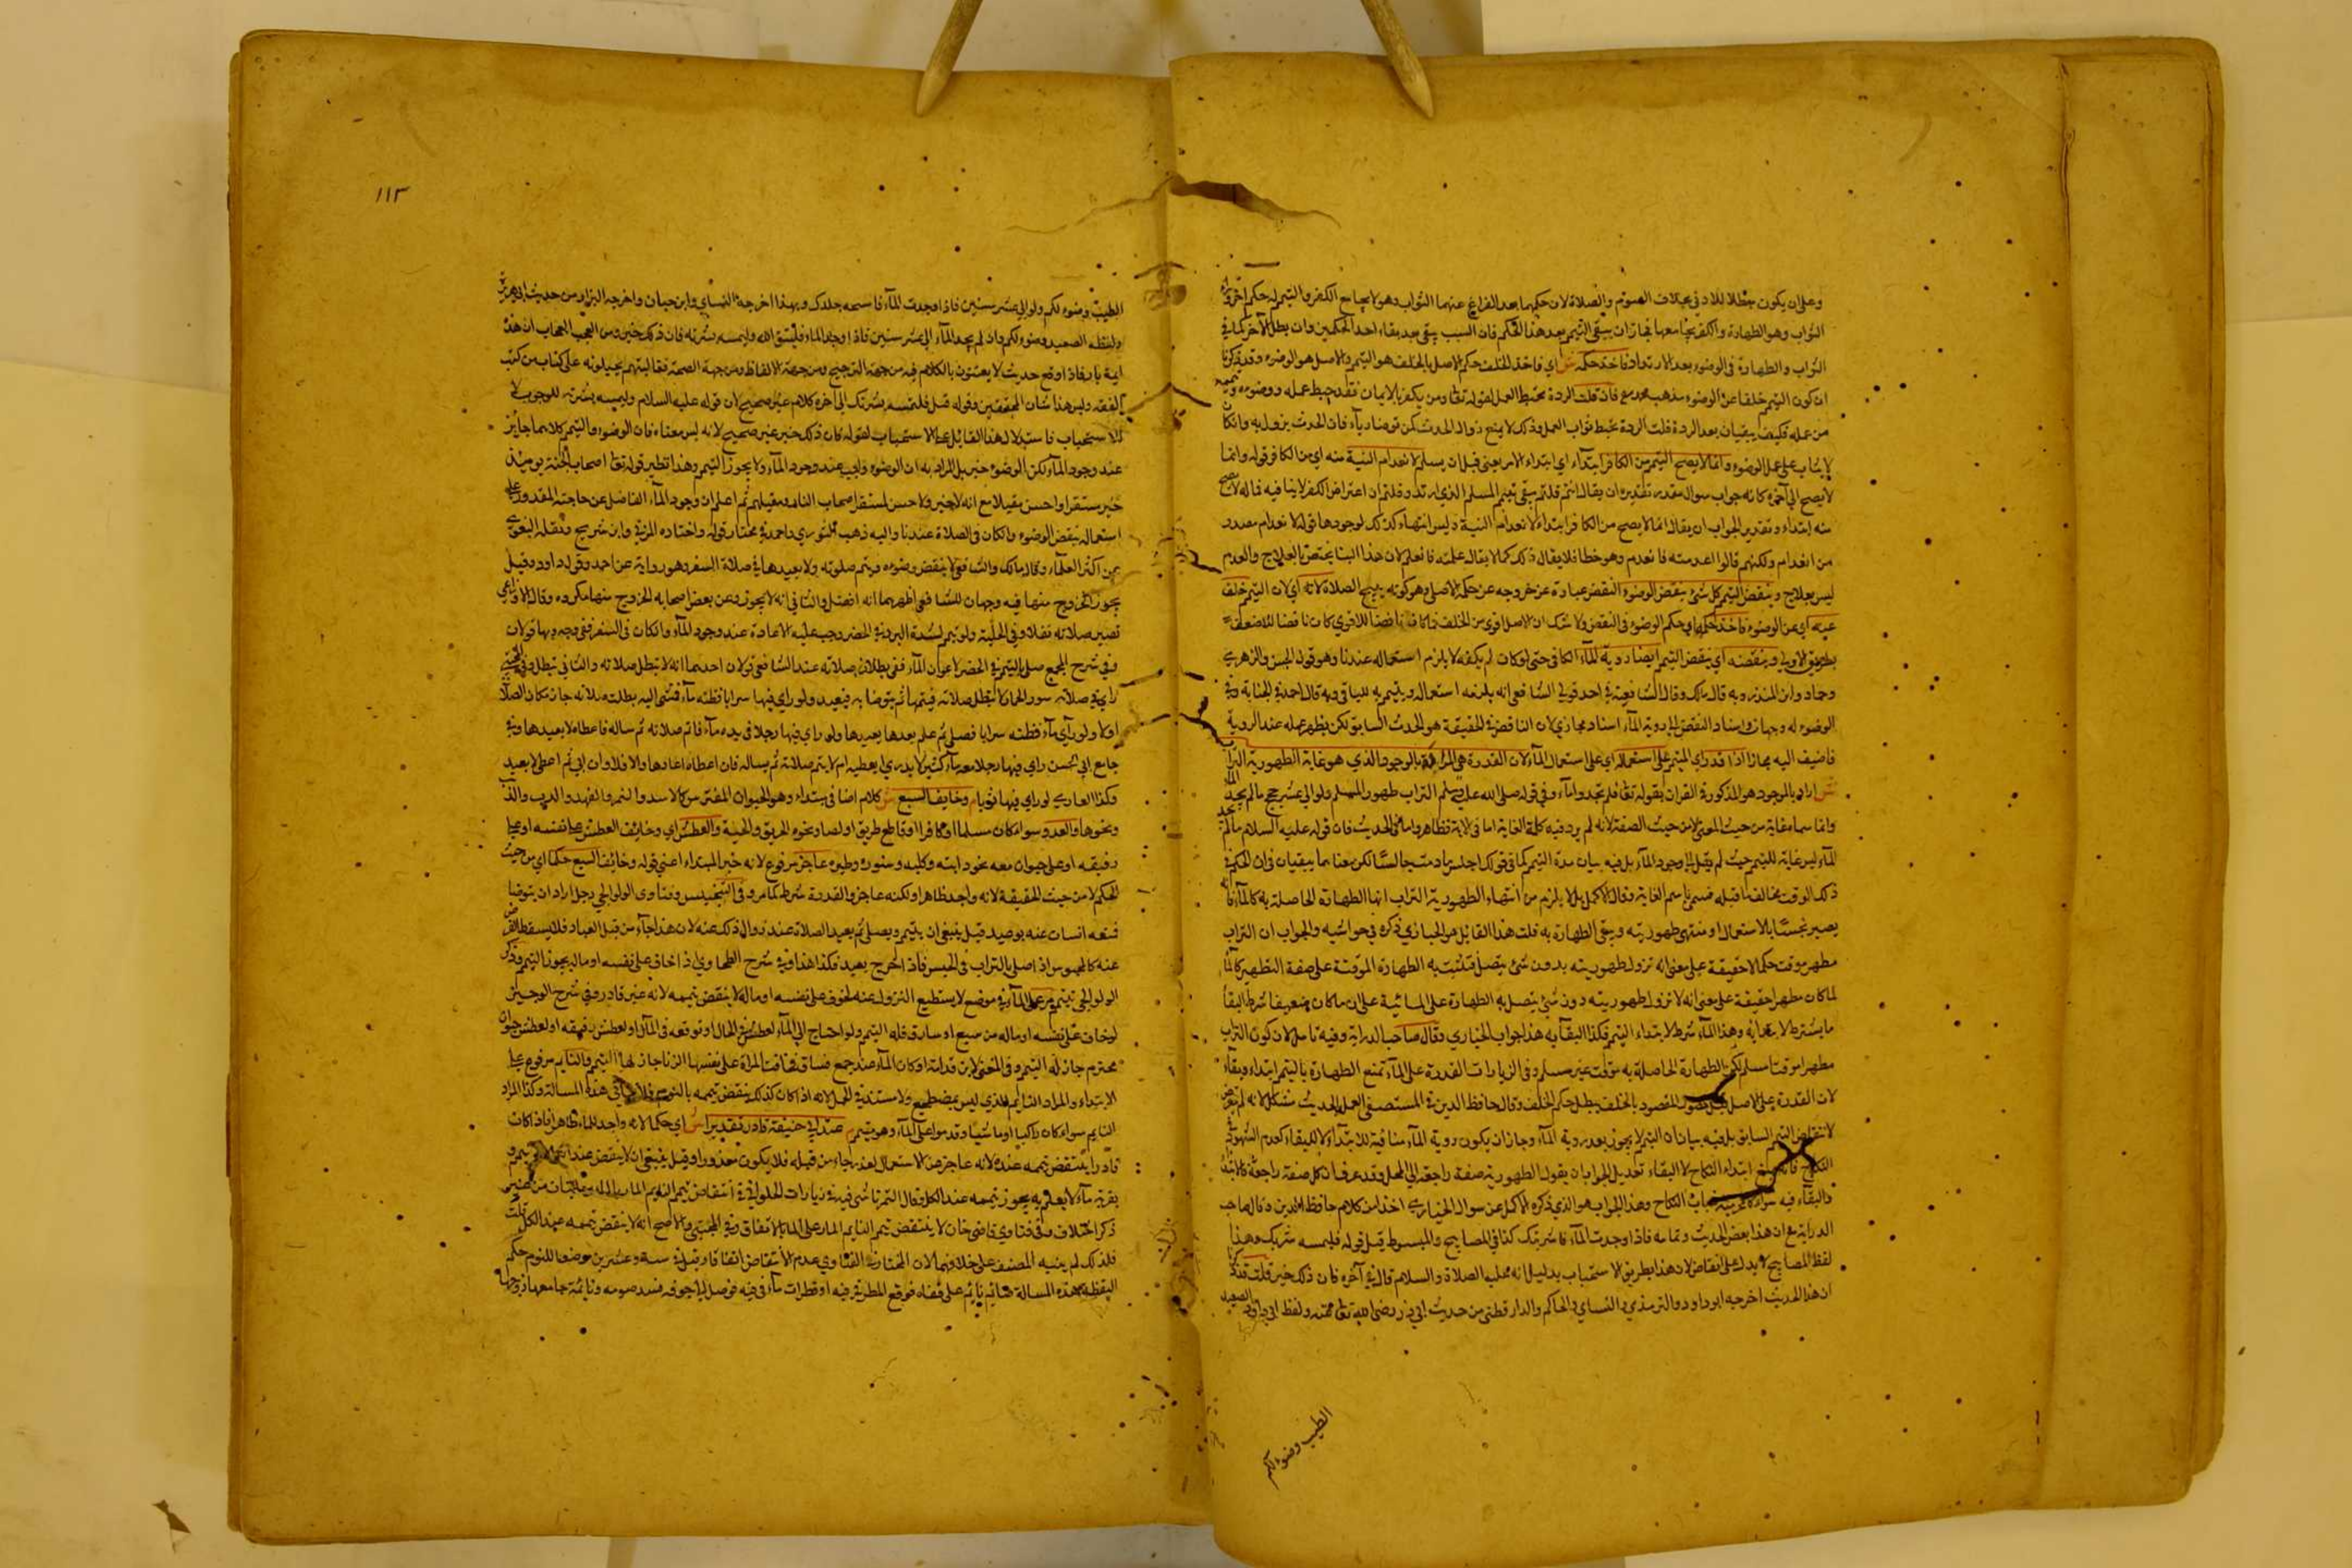 وعلى ان يكون مبطلا للاد في بخلاف الصوم والصلاة لان حكمهما بعد الفراغ عنهما الثواب وهو لا يجامع الكفر والتيمم له حكم آخر وراء
الثواب وهو الطهارة والكفر يجامعها فجاز ان يبقى التيمم بعد هذا الحكم فان السبب يبقى بعد بقاء احد الحكمين وان بطل الآخر كما في
الثواب والطهارة في الوضوء بعد الارتداد فاخذ حكمه ش اي فاخذ الخلف حكم الاصل بالخلف هو التيمم والاصل هو الوضوء وقد ذكرنا
ان كون التيمم خلفا عن الوضوء مذهب محمد مع فان قلت الردة تحبط العمل لقوله تعالى ومن يكفر بالايمان فقد حبط عمله ووضوءه وتيممه
من عمله فكيف يبقيان بعد الردة قلت الردة تحبط ثواب العمل وذلك لا يمنع زوال الحدث كمن توضا رياء فان الحدث يزول به وان كان
لا يثاب على عمل الوضوء وانما لا يصح التيمم من الكافر ابتداء اي ابتداء الامر يعني قبل ان يسلم لانعدام النية منه اي من الكافر قوله وانما
لا يصح الى آخره كانه جواب سوال مقدر تقديره ان يقال انتم قلتم يبقى تيمم المسلم الذي ارتد وقلتم ان اعتراض الكفر لا ينافيه فما له لا يصح
منه ابتداء وتقدير الجواب ان يقال انما لا يصح من الكافر ابتداء لانعدام النية وليس انتهاء كذلك لوجودها قوله لانعدام مصدر
من انعدام ولكنهم قالوا اعدمته فانعدم وهو خطا فلا يقال ذلك كما لا يقال علمته فانعلم لان هذا البنا يختص بالعلاج والعدم
ليس بعلاج وينقض التيمم كل شئ ينقض الوضوء النقض عبارة عن خروجه عن حكمه الاصلي وهو كونه يبيح الصلاة لانه اي لان التيمم خلف
عنه اي عن الوضوء فاخذ حكمه اي حكم الوضوء في النقض ولا شك ان الاصل اقوى من الخلف فما كان ناقضا للاقوى كان ناقضا للاضعف
بطريق الاولى وينقضه اي ينقض التيمم ايضا روية الماء الكافي حتى لو كان لم يكفه لا يلزم استعماله عندنا وهو قول الحسن والزهري
وحماد وابن المنذر وبه قال مالك وقال الشافعي في احد قولي الشافعي انه يلزمه استعماله ويتيمم به للباقي وبه قال احمد في الجنابة وفي
الوضوء له وجهان واسناد النقض الى روية الماء اسناد مجازي لان الناقض في الحقيقة هو الحدث السابق لكن يظهر عمله عند الروية
فاضيف اليه مجازا اذا قدر اي المتيمم على استعماله اي على استعمال الماء لان القدرة هي المرادة بالوجود الذي هو غاية الطهورية التراب
ش اراد بالوجود هو المذكور في القران بقوله تعالى فلم تجدوا ماء وفي قوله صلى الله عليه وسلم التراب طهور المسلم ولو الى عشر حجج ما لم يجد الماء
وانما سماه غاية من حيث المعنى لا من حيث الصفة لانه لم يرد فيه كلمة الغاية اما في الاية فظاهر واما في الحديث فان قوله عليه السلام ما لم يجد
الماء ليس غاية للتيمم حيث لم يقل الى وجود الماء بل فيه بيان مدة التيمم كما في قولك اجلس ما دمت جالسا لكن معناهما يبقيان في ان الحكم في
ذلك الوقت يخالف ما قبله فسمي باسم الغاية وقال الاكمل بل لا يلزم من انتهاء الطهورية التراب انها الطهارة الحاصلة به كالماء فانه
يصير نجسا بالاستعمال ومنتهى طهوريته ويبقى الطهارة به قلت هذا القايل هو الخبازي ذكره في حواشيه والجواب ان التراب
مطهر موقت حكما لا حقيقة على معنى انه تزول طهوريته بدون شئ يتصل فثبت به الطهارة الموقتة على صفة التطهير كالماء
لما كان مطهرا حقيقة على معنى انه لا تزول طهوريته دون شئ يتصل به الطهارة على المائية على ان ما كان ضعيفا شرط البقا
ما يشترط لابتدائه وهذا الماء شرط لابتداء التيمم فكذا البقائه هذا جواب الخبازي وقال صاحب الدراية وفيه تامل لان كون التراب
مطهرا موقتا مسلم لكن الطهارة الحاصلة به موقت غير مسلم وفي الزيارات القدرة على الماء تمنع الطهارة بالتيمم ابتداء وبقاء
لان القدرة على الاصل قبل حصول المقصود بالخلف يبطل حكم الخلف وقال حافظ الدين في المستصفى العمل بالحديث مشكل لانه لم يتعرض
لانتقاض التيمم السابق بل فيه بيان ان التيمم لا يجوز بعد روية الماء وجاز ان يكون روية الماء منافية للابتداء لا للبقاء كعدم الشهود في
النكاح فانه يمنع ابتداء النكاح لا البقاء تحديل الجواب ان يقول الطهورية صفة راجعة الى المحل وقد عرف ان كل صفة راجعة كالابتداء
والبقاء فيه سواء كالمحرمية في باب النكاح وهذا الجواب هو الذي ذكره الاكمل عن سوال الخبازي اخذا من كلام حافظ الدين وقال صاحب
الدراية مع ان هذا بعض الحديث وتمامه فاذا وجدت الماء فامسه بشرتك كذا في المصابيح والمبسوط قبل قوله فليمسه بشرتك وهذا
لفظ المصابيح لا يدل على انتقاض لان هذا بطريق الاستحباب بدليل انه عليه الصلاة والسلام قال في آخره فان ذلك خير قلت قد ذكرنا
ان هذا الحديث اخرجه ابو داود والترمذي والنساي والحاكم والدارقطني من حديث ابي ذر رضي الله تعالى عنه ولفظ ابي داود الصعيد
الطيب وضوء لكم
١١٣
الطيب وضوء لكم ولو الى عشر سنين فاذا وجدت الماء فامسحه جلدك وبهذا اخرجه النساي وابن حبان واخرجه البزار من حديث ابي هريرة
ولفظه الصعيد وضوء لكم وان لم يجد الماء الى عشر سنين فاذا وجد الماء فليتق الله وليمسه بشرته فان ذلك خير ومن العجب العجاب ان هذه
ايمة بارفاذا وقع حديث لا يعتنون بالكلام فيه من جهة الترجيح ومن جهة الالفاظ ومن جهة الصحة فغالبهم يحيلونه على كتاب من كتب
الفقه وليس هذا شان المحققين وقوله قبل فلتمسه بشرتك الى آخره كلام غير صحيح لان قوله عليه السلام وليمسه بشرته للوجوب لا
للاستحباب فاستدلال هذا القائل على الاستحباب لقوله فان ذلك خير غير صحيح لانه ليس معناه فان الوضوء والتيمم كلاهما جايز
عند وجود الماء لكن الوضوء خير بل المراد به ان الوضوء واجب عند وجود الماء ولا يجوز التيمم وهذا نظير قوله تعالى اصحاب الجنة يومئذ
خير مستقرا واحسن مقيلا مع انه لا خير ولا حسن لمستقر اصحاب النار ومقيلهم ثم اعلم ان وجود الماء الفاضل عن حاجته المقدور على
استعماله ينقض الوضوء وان كان في الصلاة عندنا واليه ذهب الثوري واحمد في مختار قوله واختاره المزني وابن شريح ونقله البغوي
عن اكثر العلماء وقال مالك والشافعي لا ينقض وضوءه ويتم صلوته ولا يعيدها في صلاة السفر وهو رواية عن احمد وقول داود وقيل
يجوز الخروج منها فيه وجهان للشافعي اظهرهما انه افضل والثاني انه لا يجوز وعن بعض اصحابه الخروج منها مكروه وقال الاوزاعي
تصير صلاته نفلا وفي الحلية ولو تيمم لشدة البرد في الحضر وجب عليه الاعادة عند وجود الماء وان كان في السفر ففي وجوبها قولان
وفي شرح المجمع صلى بالتيمم في الحضر لاعواز الماء ففي بطلان صلاته عند الشافعي قولان احدهما انه لا تبطل صلاته والثاني تبطل وفي المجتبى
راى في صلاته سور الحمار لا تبطل صلاته فيتمها ثم يتوضا به فيعيد ولو راى فيها سرابا فظنه ماء فمشى اليه بطلت صلاته جاز مكان الصلاة
اولا ولو راى ماء فظنه سرابا فصلى ثم علم بعدها يعيدها ولو راى فيها رجلا في يده ماء فاتم صلاته ثم ساله فاعطاه لا يعيدها وفي
جامع ابي الحسن راى فيها رجلا معه ماء كثير لا يدري ايعطيه ام لا يتم صلاته ثم يساله فان اعطاه اعادها والا فلا وان ابى ثم اعطى لا يعيد
وكذا العاري لو راى فيها ثوبا م وخايف السبع ش كلام اضافي مبتداء وهو الحيوان المفترس كالاسد والنمر والفهد والدب والذئب
ونحوها والعدو سواء كان مسلما او كافرا او قاطع طريق او لصا ونحوه الحريق والحية والعطش اي وخائف العطش على نفسه او على
رفيقه او على حيوان معه نحو دابته وكلبه وسنوره وطيره عاجز مرفوع لانه خبر المبتداء اعني قوله وخائف السبع حكما اي من حيث
الحكم لا من حيث الحقيقة لانه واجد ظاهرا ولكنه عاجز والقدرة شرط كما مر وفي التجنيس وفتاوى الولوالجي رجل اراد ان يتوضا
فمنعه انسان عنه بوعيد قيل ينبغي ان يتيمم ويصلي ثم يعيد الصلاة عند زوال ذلك عنه لان هذا جاء من قبل العباد فلا يسقط الفرض
عنه كالمحبوس اذا صلى بالتراب في الحبس فاذا اخرج يعيد فكذا هذا وفي شرح الطحاوي اذا خاف على نفسه او ماله يجوز التيمم وذكر
الولوالجي تيمم مر على الماء في موضع لا يستطيع النزول عنه لخوف على نفسه او ماله لا ينقض تيممه لانه غير قادر وفي شرح الوجيز
لو خاف على نفسه او ماله من سبع او سارق فله التيمم ولو احتاج الى الماء لعطش في الحال او توقعه في المآل او لعطش رفيقه او لعطش حيوان
محترم جاز له التيمم وفي المغني لابن قدامة او كان الماء عند جمع فساق فخافت المراة على نفسها الزنا جاز لها التيمم والنايم مرفوع على
الابتداء والمراد النايم الذي ليس بمضطجع ولا مستند في المحمل لانه اذا كان كذلك ينقض تيممه بالنوم فلا في هذه المسالة وكذا المراد
النايم سواء كان راكبا او ماشيا وقد مر على الماء وهو متيمم عند ابي حنيفة قادر تقديرا ش اي حكما لانه واجد للماء ظاهرا فاذا كان
قادرا ينتقض تيممه عنده لانه عاجز عن الاستعمال لعذر جاء من قبله فلا يكون معذورا وقيل ينبغي ان لا ينقض عند
بقربه ماء لا يعلم به يجوز تيممه عند الكل وقال التمرتاشي في زيارات الحلواني في انتقاض تيمم النايم المار بالماء روايتان من غير
ذكر اختلاف وفي فتاوي قاضي خان لا ينتقض تيمم النايم المار على الماء بالاتفاق وفي المجتبى والاصح انه لا ينقض تيممه عند الكل قلت
فلذلك لم ينبه المصنف على خلافهما لان المختار في الفتاوي عدم الانتقاض اتفاقا وقيل في ستة وعشرين موضعا للنوم حكم
اليقظة هذه المسالة صائم نائم على قفاه فوقع المطر في فيه او قطرات ماء في فيه فوصل الى جوفه فسد صومه ونايمة جامعها زوجها